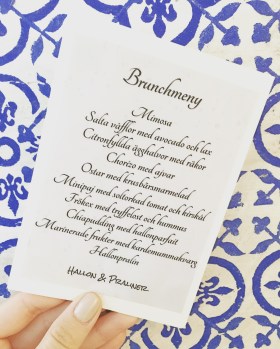 Brunchmeny
Mimosa
Salta våfflor med avocado och lax
Citronfyllda ägghalvor med räkor
Chorizo med ajvar
Ostar med krusbärsmarmelad
Minipaj med soltorkad tomat och kirskål
Fröknäcke med tryffelost och hummus
Chiapudding med hallonparfait
Marinerade frukter med kardemummakvarg
Hallonpralin
Hallon & Praliner